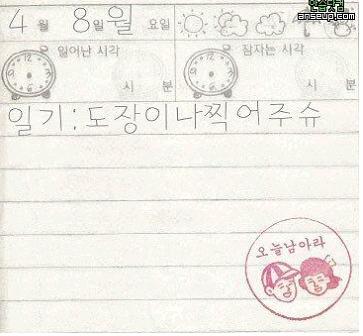 안습닷컴
anseup.com
4월 8일월요일
일어난 시각 잠자는 시각
시 분 시 분
일기:도장이나찍어주슈
오늘남아라